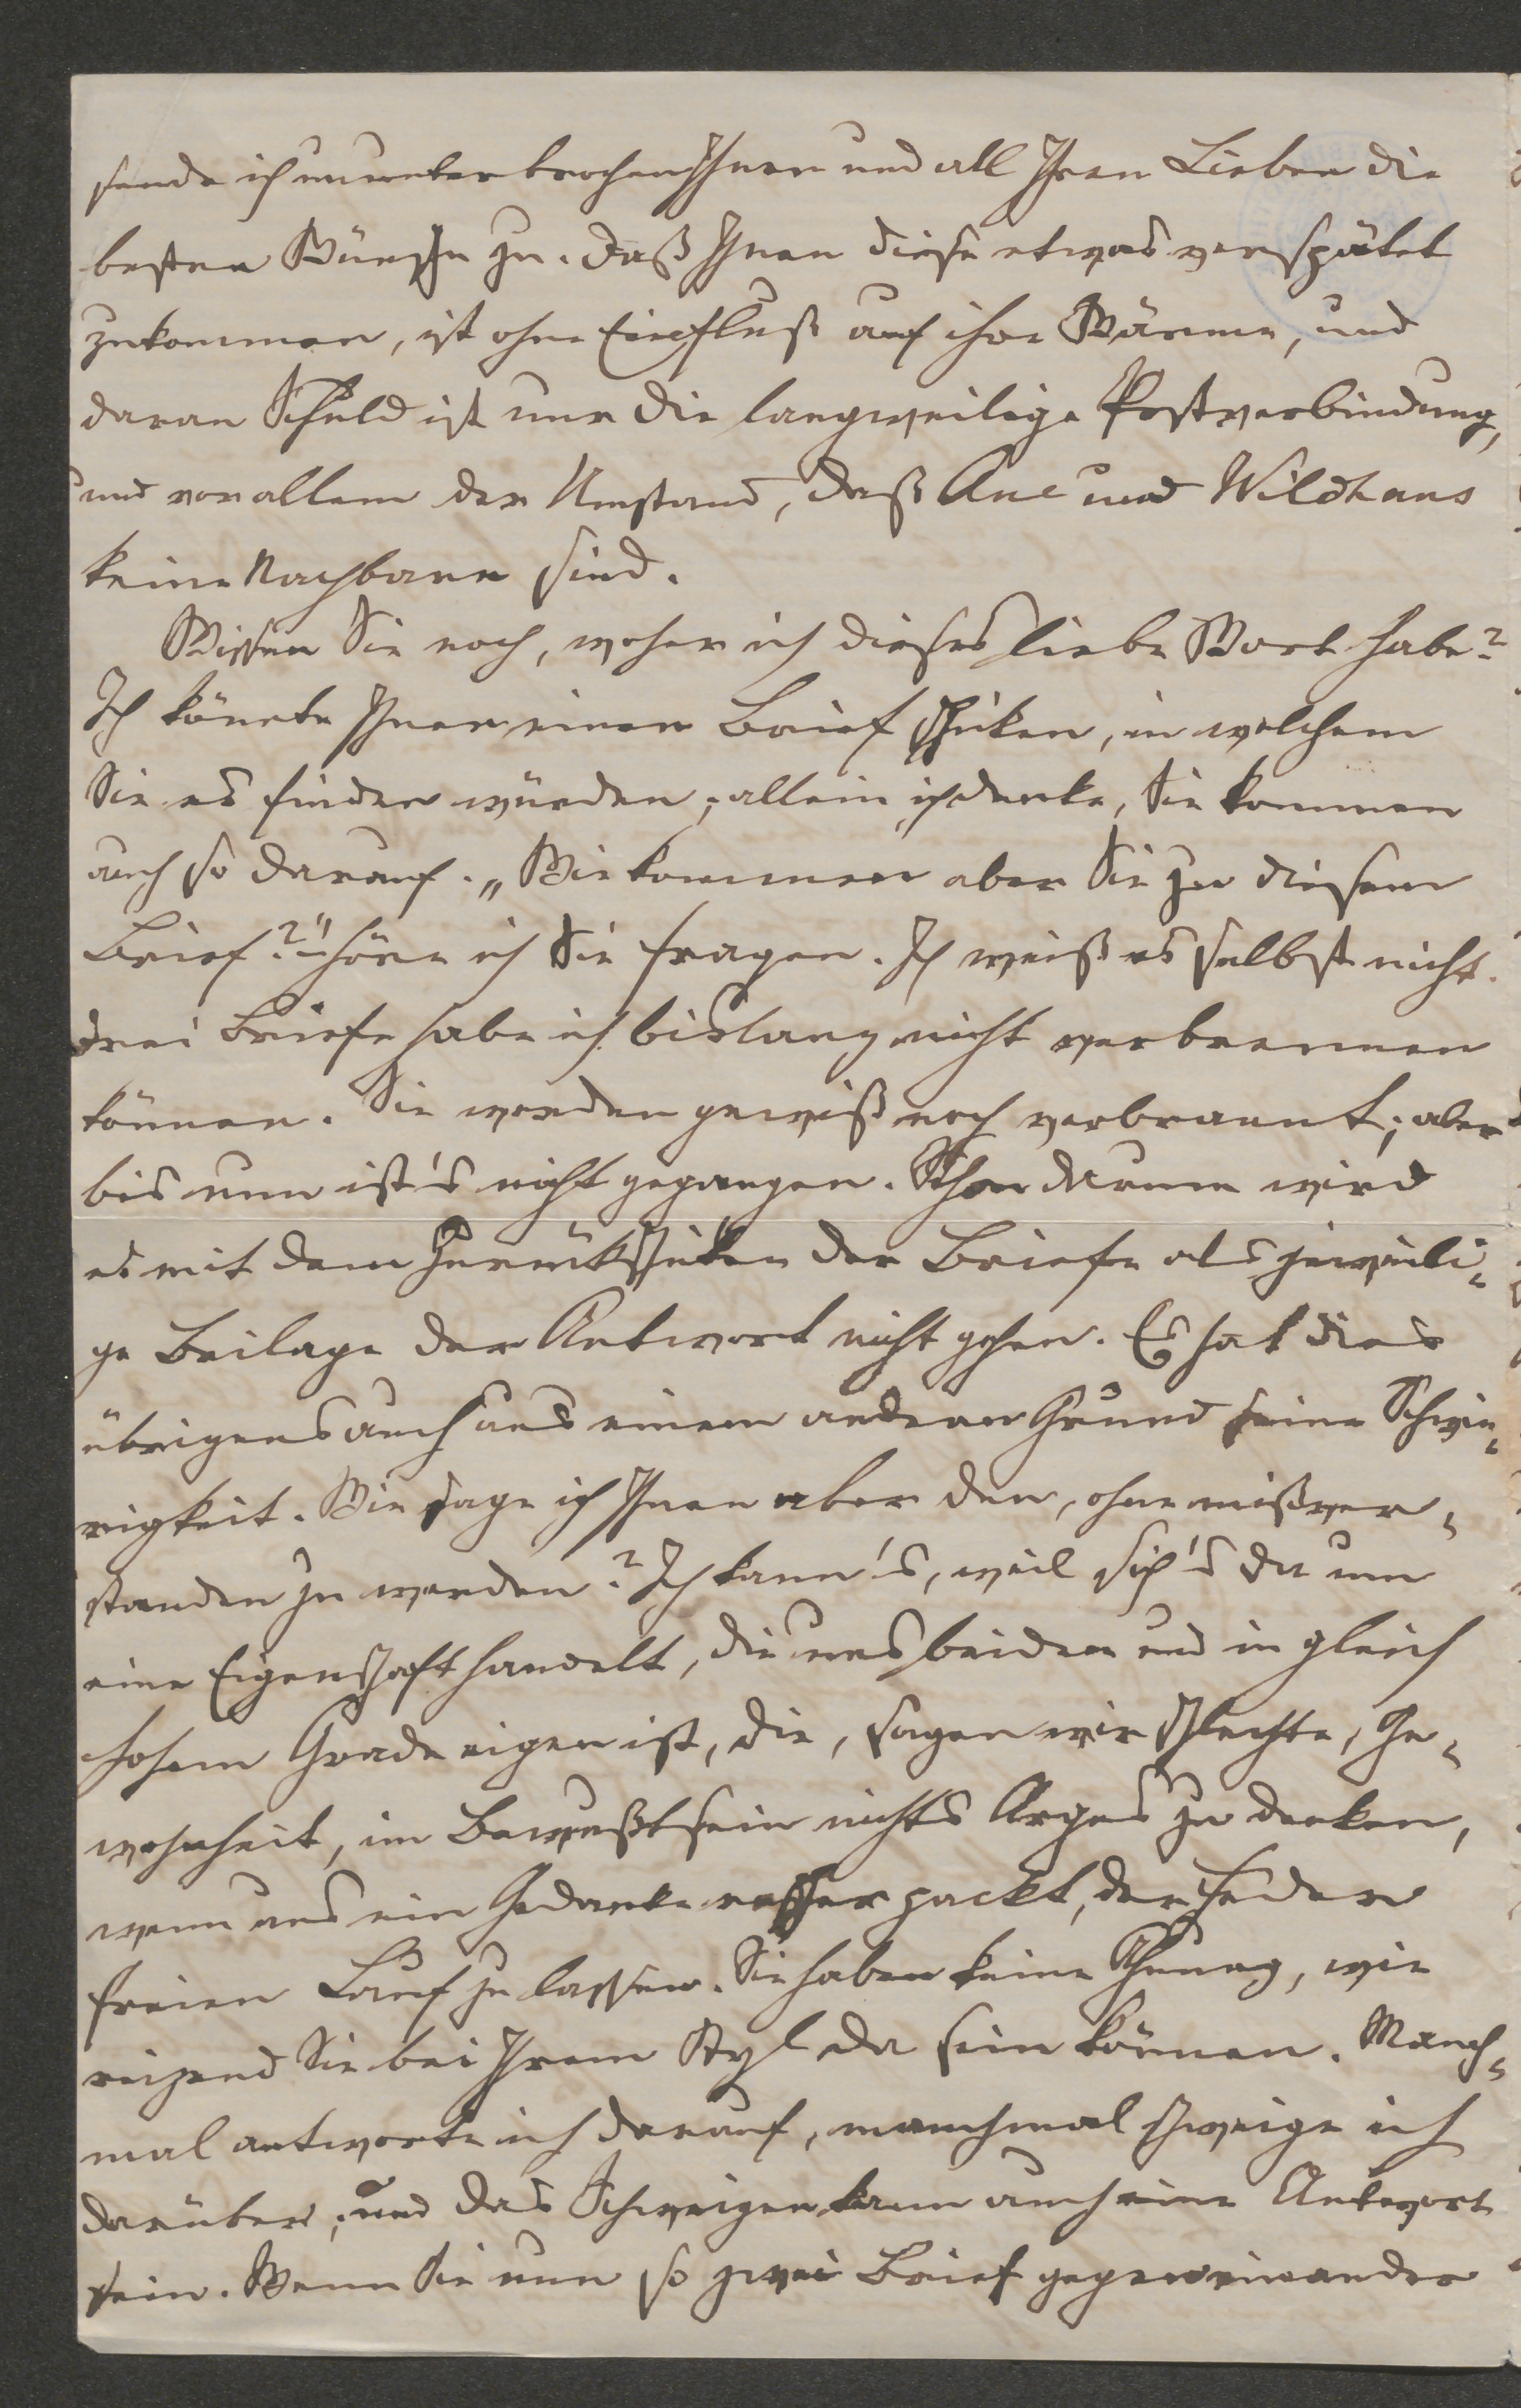 sende ich ununterbrochen Ihnen und all Ihren Lieben die
besten Wünsche zu. Daß Ihnen diese etwas verspätet
zukommen, ist ohne Einfluß auf ihre Wärme, und
daran Schuld ist nur die langweilige Postverbindung,
und vor allem der Umstand, daß Aue und Wildhaus
keine Nachbarn sind.
Wissen Sie noch, woher ich dieses liebe Wort habe?
Ich könnte Ihnen einen Brief schicken, in welchem
Sie es finden würden; allein ich denke, Sie kommen
auch so darauf. „Wie kommen aber Sie zu diesem
Brief?" höre ich Sie fragen. Ich weiß es selbst nicht.
Drei Briefe habe ich bislang nicht verbrennen
können. Sie werden gewiß noch verbrannt; aber
bis nun ist's nicht gegangen. Schon darum wird
es mit dem Zurückschicken der Briefe als jeweili-
ge Beilage der Antwort nicht gehen. Es hat dies
übrigens auch aus einem anderen Grund seine Schwie-
rigkeit. Wie sage ich Ihnen aber den, ohne mißver-
standen zu werden? Ich kann's, weil sich's da um
eine Eigenschaft handelt, die uns beiden und in gleich
hohem Grade eigen ist, die, sagen wir schlechte, Ge-
wohnheit, im Bewußtsein nichts Arges zu denken,
wenn uns ein Gedanke packt, der Feder
freien Lauf zu lassen. Sie haben keine Ahnung, wie
reizend Sie bei Ihrem Styl da sein können. Manch-
mal antworte ich darauf, manchmal schweige ich
darüber; und das Schweigen kann auch eine Antwort
sein. Wenn Sie nun so zwei Brief gegeneinander